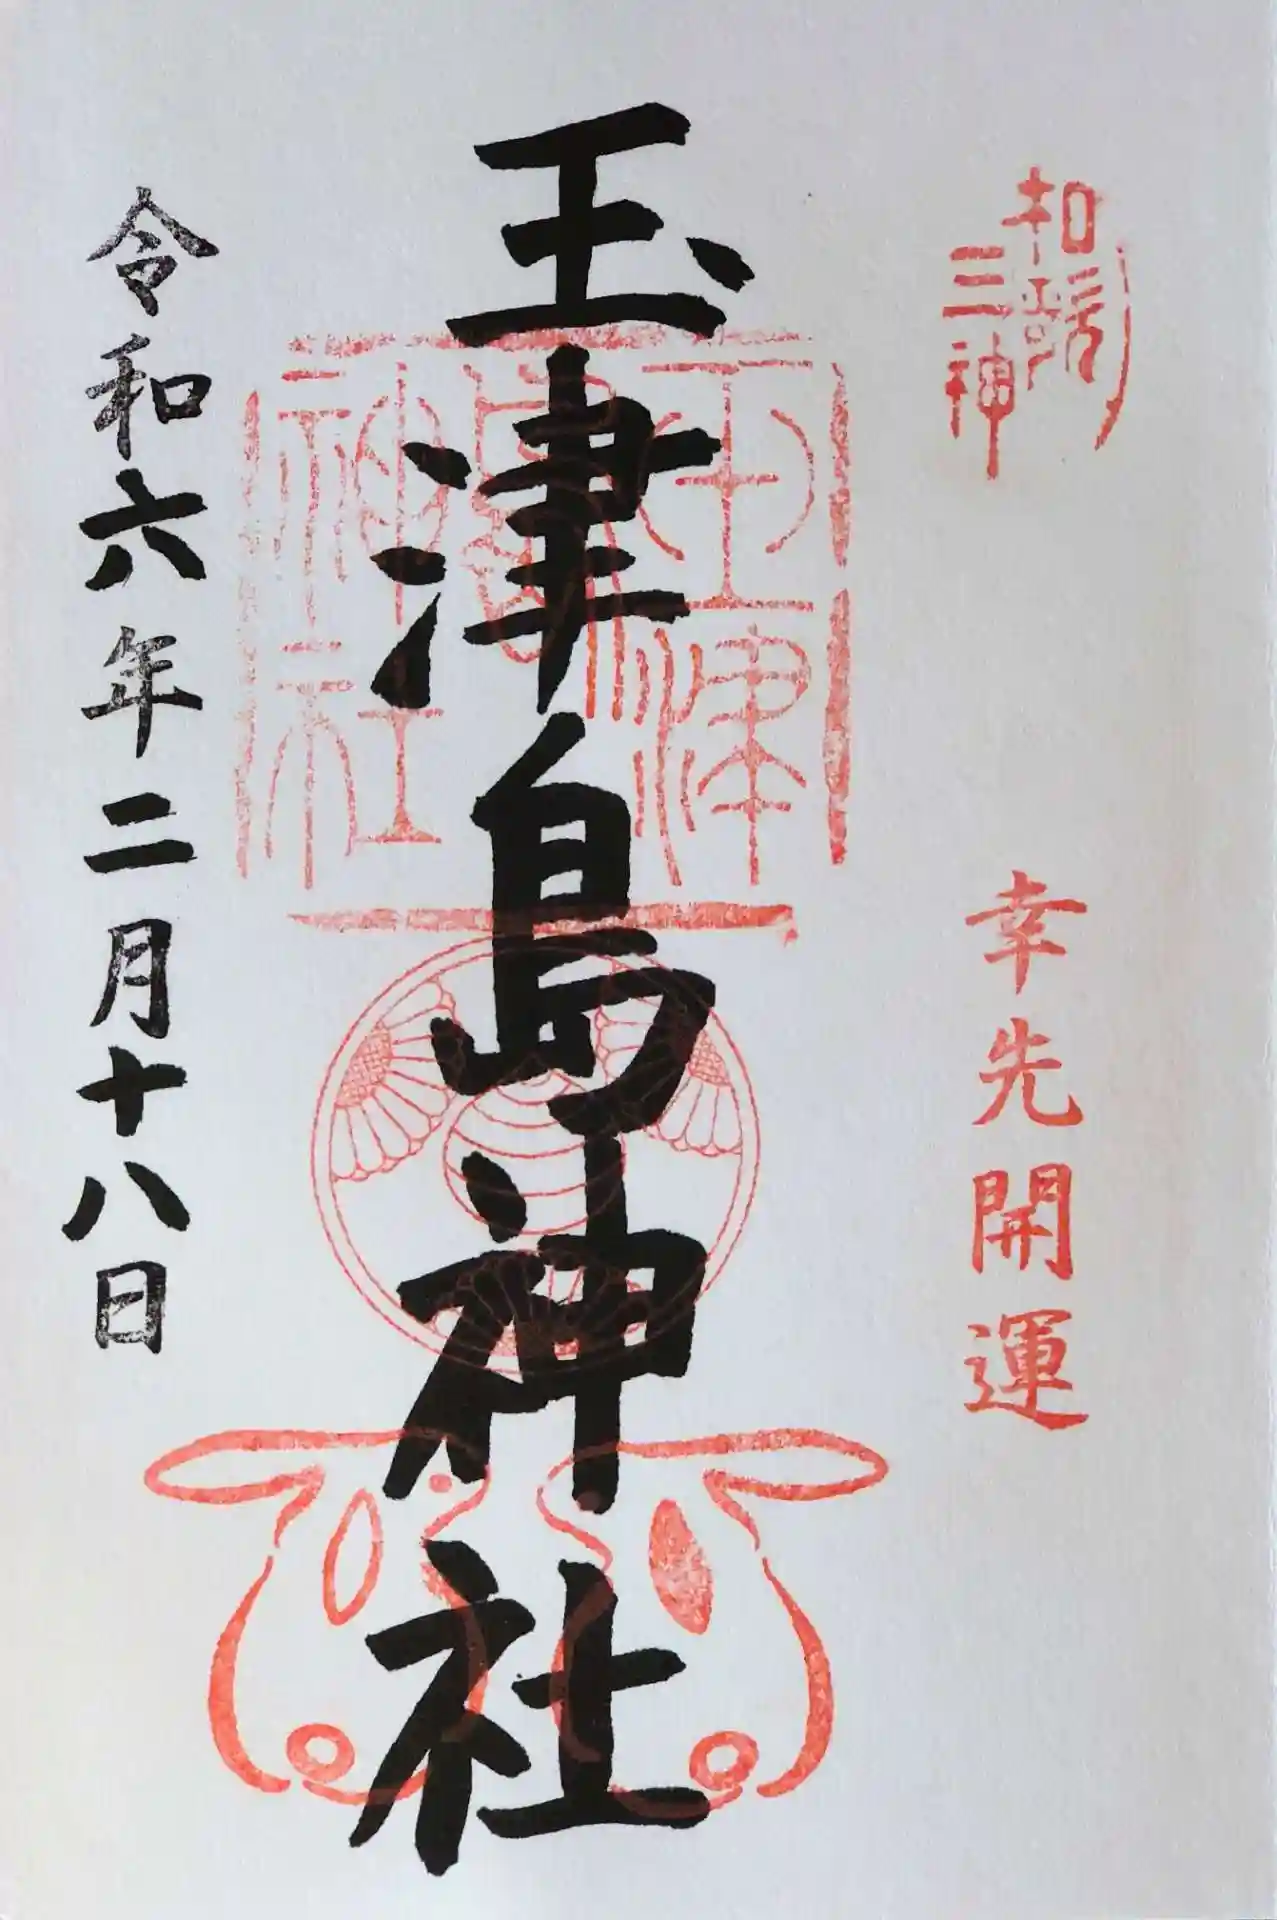 和歌
三神
幸先開運
玉津島神社
玉津
島
神社
令和六年二月十八日